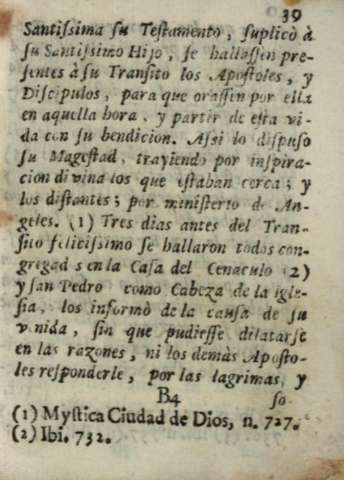 39
Santiſsima ſu Teſtamento, ſuplicò à
ſu Santiſsimo Hijo, ſe hallaſſen pre-
ſentes à ſu Tranſito los Apoſtoles, y
Diſcipulos, para que oraſſen por ella
en aquella hora, y partir de eſta vi-
da con ſu bendicion. Aſsi lo diſpuſo
ſu Mageſtad, trayiendo por inſpira-
cion divina los que eſtaban cerca; y
los diſtantes; por miniſterio de An-
geles. (1) Tres dias antes del Tran-
ſito feliciſsimo ſe hallaron todos con-
gregad s en la Caſa del Cenaculo (2)
y ſan Pedro como Cabeza de la igle-
ſia, los informò de la cauſa de ſu
venida, ſin que pudieſſe dilatarſe
en las razones, ni los demàs Apoſto-
les reſponderle, por las lagrimas, y
B4 ſo-
(1) Myſtica Ciudad de Dios, n. 727.
(2) Ibi. 732.